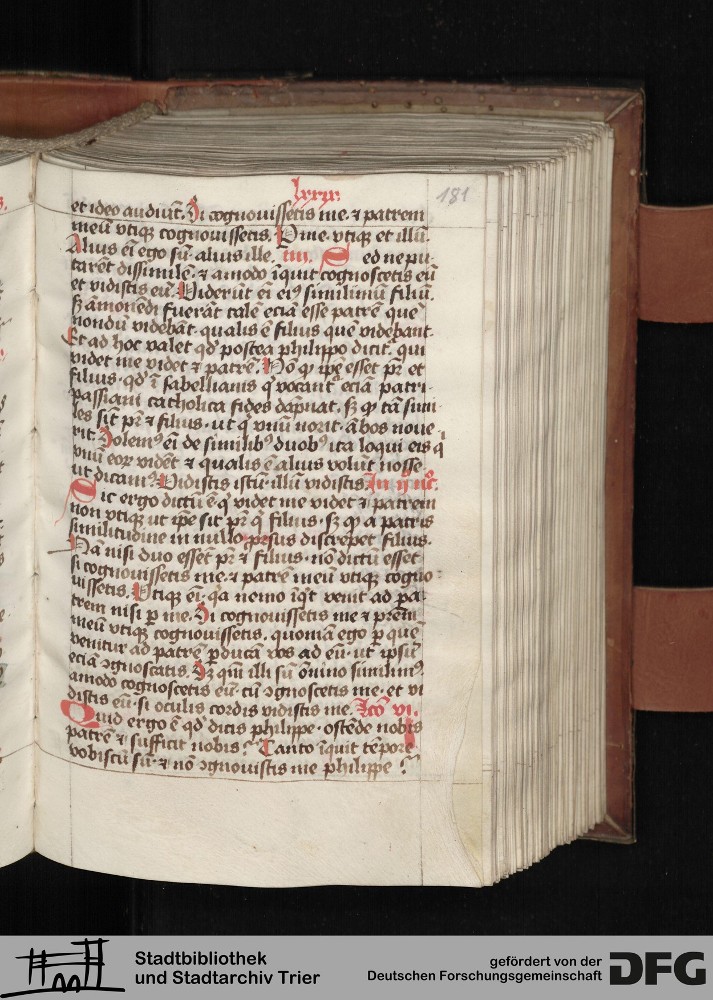 lxxix.
181
et ideo audiūt. Si cognouissetis me. ⁊ patrem
meū vtiqꝫ cognouissetis. Nō me. vtiqꝫ et illū.
Alius eī ego sū. alius ille. iiii. Sed ne pu-
tarēt dissimilē. ⁊ amodo īquit cognoscetis eū
et vidistis eū. Viderūt eī eiꝰ similimū filiū.
sꝫ āmonēdi fuerāt talē eciā esse patrē quē
nondū videbāt. qualis ē filius quē videbant.
Et ad hoc valet qd' postea philippo dicit. qui
videt me videt ⁊ patrē. Nō qꝫ ip̄e esset pr̄ et
filius. qd' ī sabellianis q' vocant' eciā patri-
passiani catholica fides dāpnat. sꝫ qꝫ tā simi-
les sīt pr̄ ⁊ filius. ut q' vnū norit. ābos noue-
rit. Solemꝰ eī de similibꝰ duobꝰ ita loqui eis q'
vnū eoꝝ vidēt ⁊ qualis ē alius volūt nosse.
ut dicamꝰ. Vidistis istū. illū vidistis.
Sic ergo dictū ē q' videt me videt ⁊ patrem
non vtiqꝫ ut ip̄e sit pr̄ q' filius. sꝫ qꝫ a patris
similitudine in nullo prorsus discrepet filius.
Nā nisi duo essēt pr̄ ⁊ filius. nō dictū esset
si cognouissetis me. ⁊ patrē meū vtiqꝫ cogno-
uissetis. Vtiqꝫ eī. qa nemo īq't venit ad pa-
trem nisi p me. Si cognouissetis me ⁊ pr̄em
meū vtiqꝫ cognouissetis. quoniā ego p quē
venitur ad patrē pducā vos ad eū. ut ip̄sū
eciā ꝯgnoscatis. Sꝫ qm̄ illi sū ōnino similimꝰ.
amodo cognoscetis eū. cū ꝯgnoscetis me. et vi
distis eū. si oculis cordis vidistis me. vi.
Quid ergo ē qd' dicis philippe. ostēde nobis
patrē ⁊ sufficit nobis? Tanto īquit tēpore
vobiscū sū. ⁊ nō ꝯgnouistis me philippe?
Stadtbibliothek
und Stadtarchiv Trier
gefördert von der
Deutschen Forschungsgemeinschaft
DFG